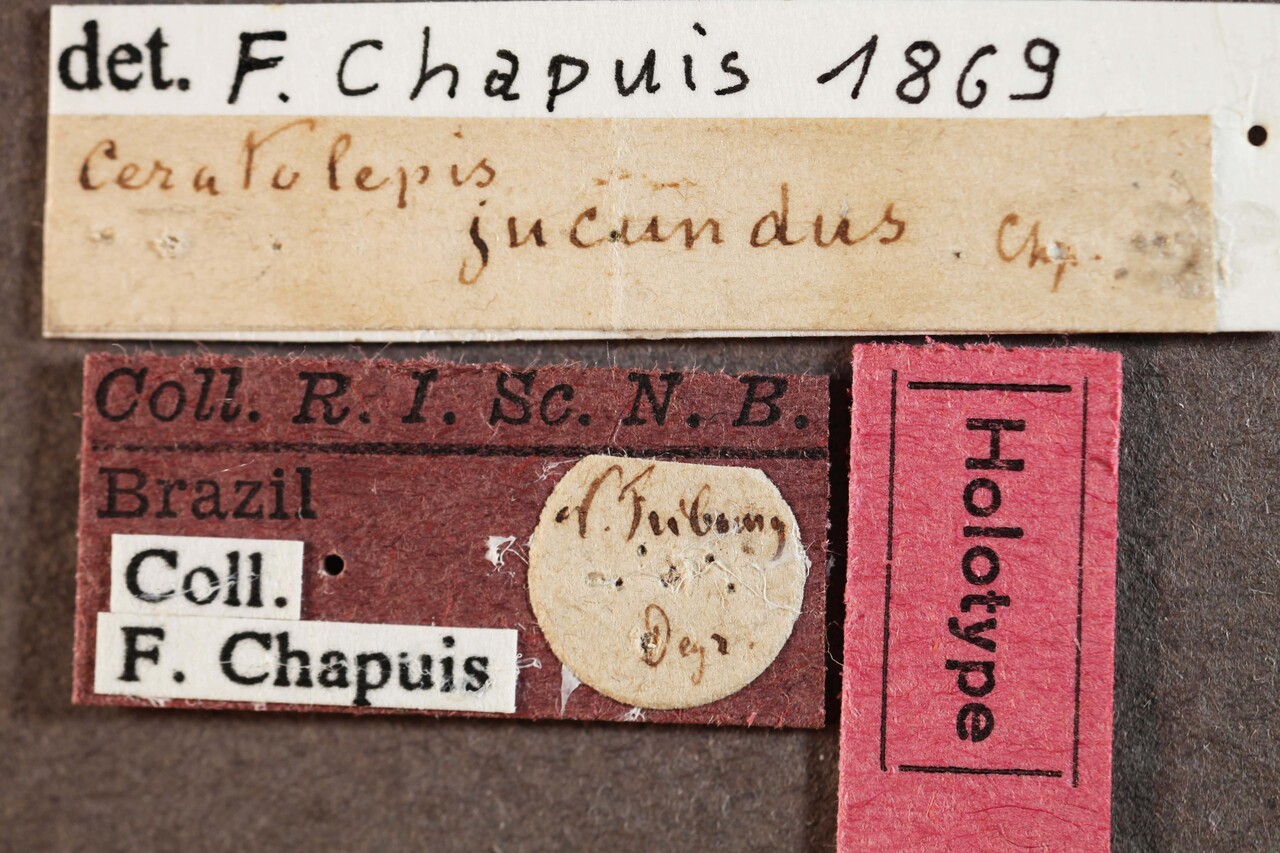 det. F. Chapuis 1869
Ceratolepis
jucundus Chp.
Coll. R. I. Sc. N. B.
Brazil
Coll.
F. Chapuis
N. Fribourg
Deyr.
Holotype